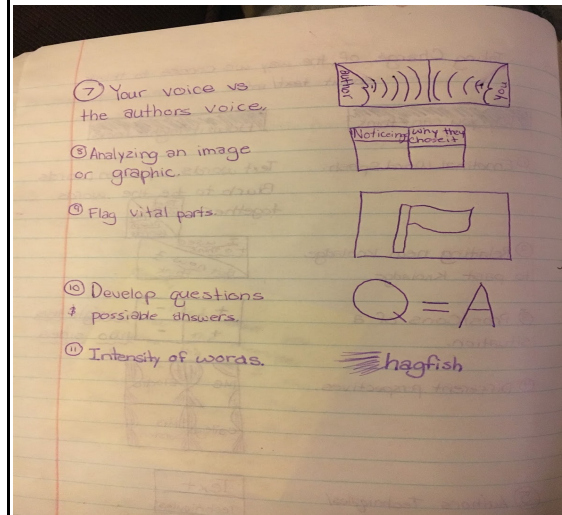 ⑦ Your voice vs
the authors voice.
author
you
⑧ Analyzing an image
or graphic.
Noticeing
why they
chose it
⑨ Flag vital parts.
⑩ Develop questions
& possiable answers.
Q = A
⑪ Intensity of words.
hagfish